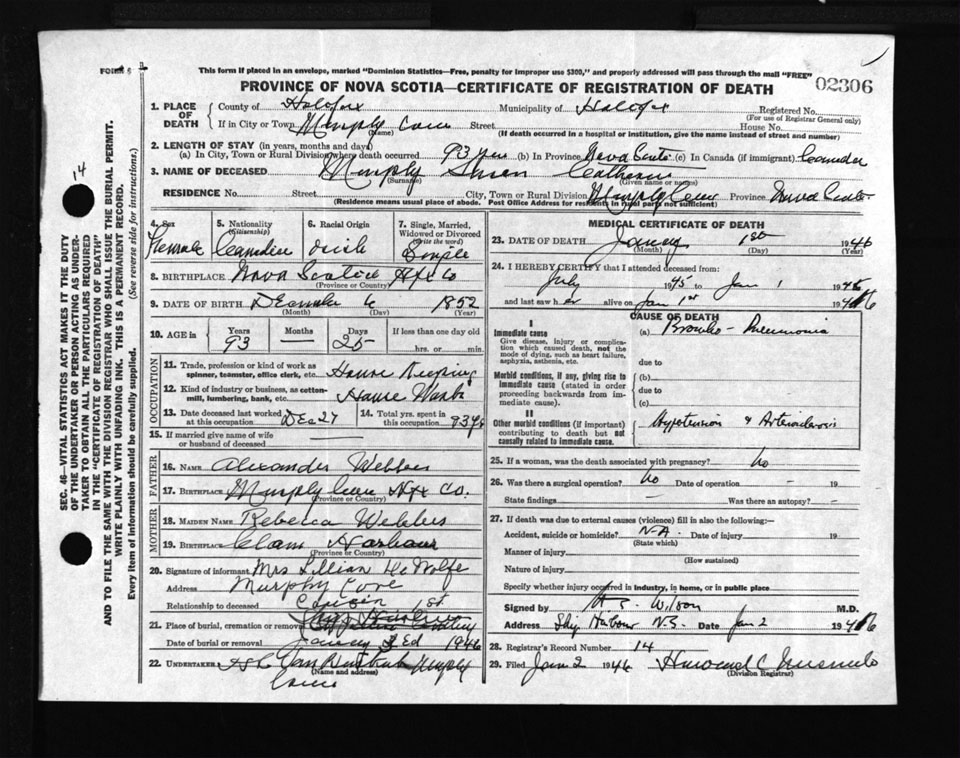 FORM 6
This form if placed in an envelope, marked "Dominion Statistics—Free, penalty for improper use $300," and properly addressed will pass through the mail "FREE"
02306
PROVINCE OF NOVA SCOTIA—CERTIFICATE OF REGISTRATION OF DEATH
1. PLACE OF DEATH
County of Halifax Municipality of Halifax Registered No.
(For use of Registrar General only)
If in City or Town Murphy Cove Street House No.
(Name) (If death occurred in a hospital or institution, give the name instead of street and number)
2. LENGTH OF STAY (in years, months and days)
(a) In City, Town or Rural Division where death occurred 93 yrs (b) In Province Nova Scotia (c) In Canada (if immigrant) Canada
3. NAME OF DECEASED Murphy Catherine
(Surname) (Given name or names)
RESIDENCE No. Street City, Town or Rural Division Murphy Cove Province Nova Scotia
(Residence means usual place of abode. Post Office Address for residents in rural parts not sufficient)
4. Sex 5. Nationality (Citizenship) 6. Racial Origin 7. Single, Married, Widowed or Divorced (Write the word)
Female Canadian Irish Single
8. BIRTHPLACE Nova Scotia Hfx Co
(Province or Country)
9. DATE OF BIRTH 6 1852
(Month) (Day) (Year)
10. AGE in Years Months Days If less than one day old
93 — 25 hrs. or min.
OCCUPATION
11. Trade, profession or kind of work as spinner, teamster, office clerk, etc. House Keeping
12. Kind of industry or business, as cotton-mill, lumbering, bank, etc. House Work
13. Date deceased last worked at this occupation Dec 27 14. Total yrs. spent in this occupation 93 yrs
15. If married give name of wife or husband of deceased
FATHER
16. NAME Alexander Webber
17. BIRTHPLACE Murphy Cove Hfx Co.
(Province or Country)
MOTHER
18. MAIDEN NAME Rebecca Webber
19. BIRTHPLACE Clam Harbour
(Province or Country)
20. Signature of informant Mrs Lillian DeWolfe
Address Murphy Cove
Relationship to deceased Cousin 1st.
21. Place of burial, cremation or removal
Date of burial or removal 3Ed 1946
22. UNDERTAKER Murphy
(Name and address)
Cove
MEDICAL CERTIFICATE OF DEATH
23. DATE OF DEATH 1st 1946
(Month) (Day) (Year)
24. I HEREBY CERTIFY that I attended deceased from:
July 1945 to Jan 1 1946
and last saw her alive on Jan 1st 1946
CAUSE OF DEATH
I
Immediate cause
Give disease, injury or complication which caused death, not the mode of dying, such as heart failure, asphyxia, asthenia, etc.
(a) Broncho-Pneumonia
due to
Morbid conditions, if any, giving rise to immediate cause (stated in order proceeding backwards from immediate cause).
(b)
due to
(c)
II
Other morbid conditions (if important) contributing to death but not causally related to immediate cause.
Hypertension & Arteriosclerosis
25. If a woman, was the death associated with pregnancy? No
26. Was there a surgical operation? No Date of operation — 19
State findings — Was there an autopsy? —
27. If death was due to external causes (violence) fill in also the following:—
Accident, suicide or homicide? N.A. Date of injury 19
(State which)
Manner of injury
(How sustained)
Nature of injury
Specify whether injury occurred in industry, in home, or in public place
Signed by Wilson M.D.
Address Ship Harbour N.S. Date Jan 2 1946
28. Registrar's Record Number 14
29. Filed Jan 2 1946 Howard C
(Division Registrar)
14
SEC. 46—VITAL STATISTICS ACT MAKES IT THE DUTY
OF THE UNDERTAKER OR PERSON ACTING AS UNDERTAKER TO OBTAIN ALL THE PARTICULARS REQUIRED
IN THE "CERTIFICATE OF REGISTRATION OF DEATH"
AND TO FILE THE SAME WITH THE DIVISION REGISTRAR WHO SHALL ISSUE THE BURIAL PERMIT.
WRITE PLAINLY WITH UNFADING INK. THIS IS A PERMANENT RECORD.
Every item of information should be carefully supplied. (See reverse side for instructions.)